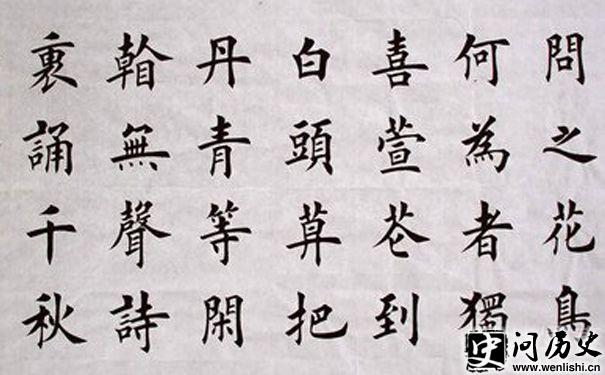 問之花鳥
何為者獨
喜萱花到
白頭莫把
丹青等閑
看無聲詩
裏誦千秋
史 问历史
www.wenlishi.cn